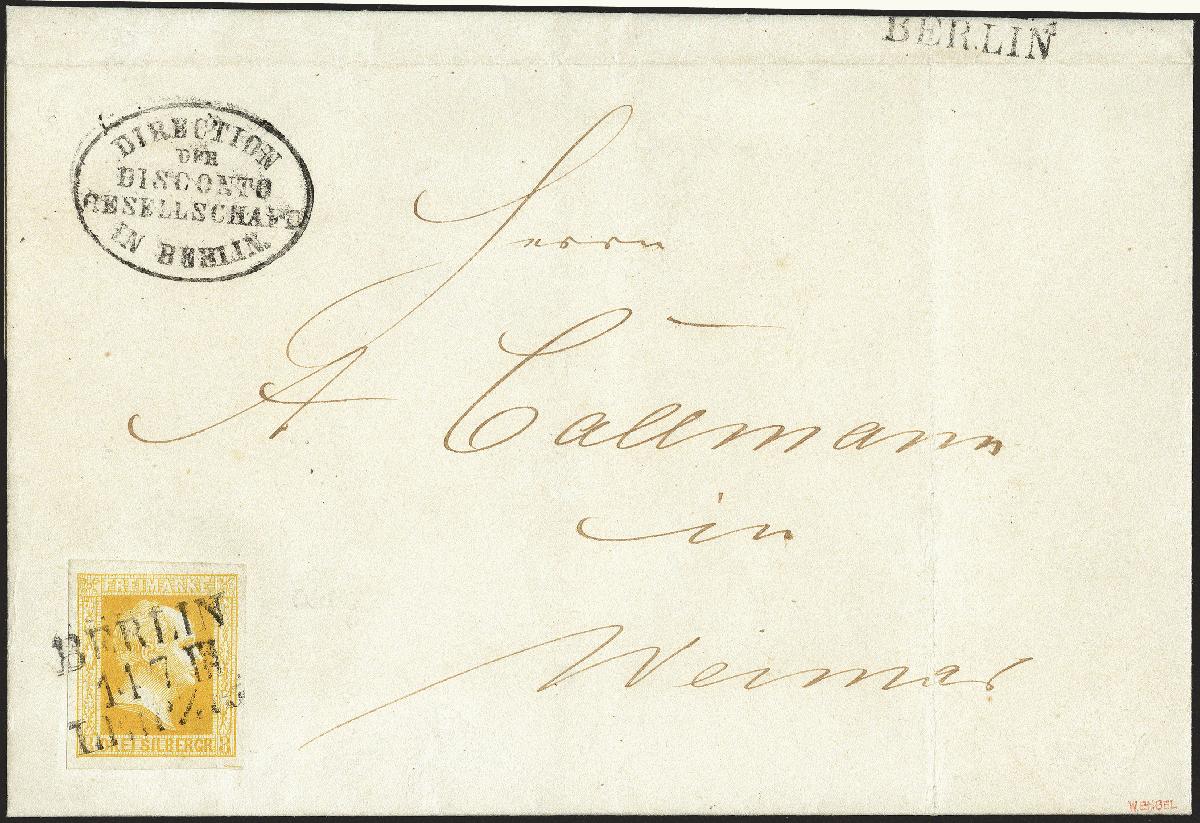 BERLIN
DIRECTION
DER
DISCONTO
GESELLSCHAFT
IN BERLIN.
Herrn
A Callmann
in
Weimar
FREIMARKE
BERLIN
11 7 III
LEIPZIG
DREI SILBERGR. 3
W. ENGEL